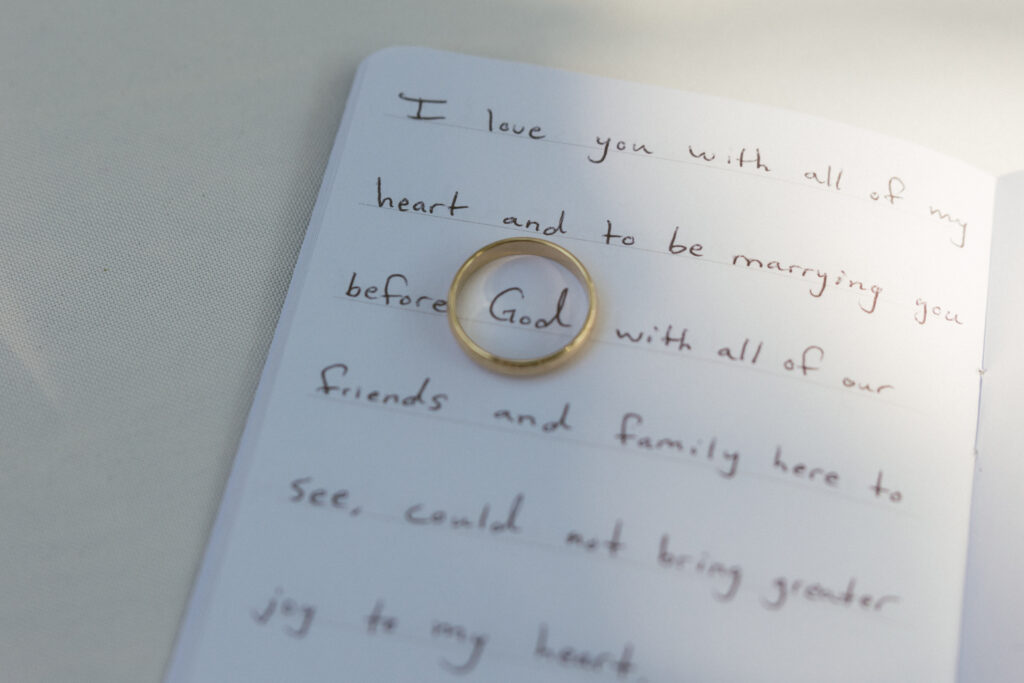 I love you with all of my
heart and to be marrying you
before God with all of our
friends and family here to
see, could not bring greater
joy to my heart.